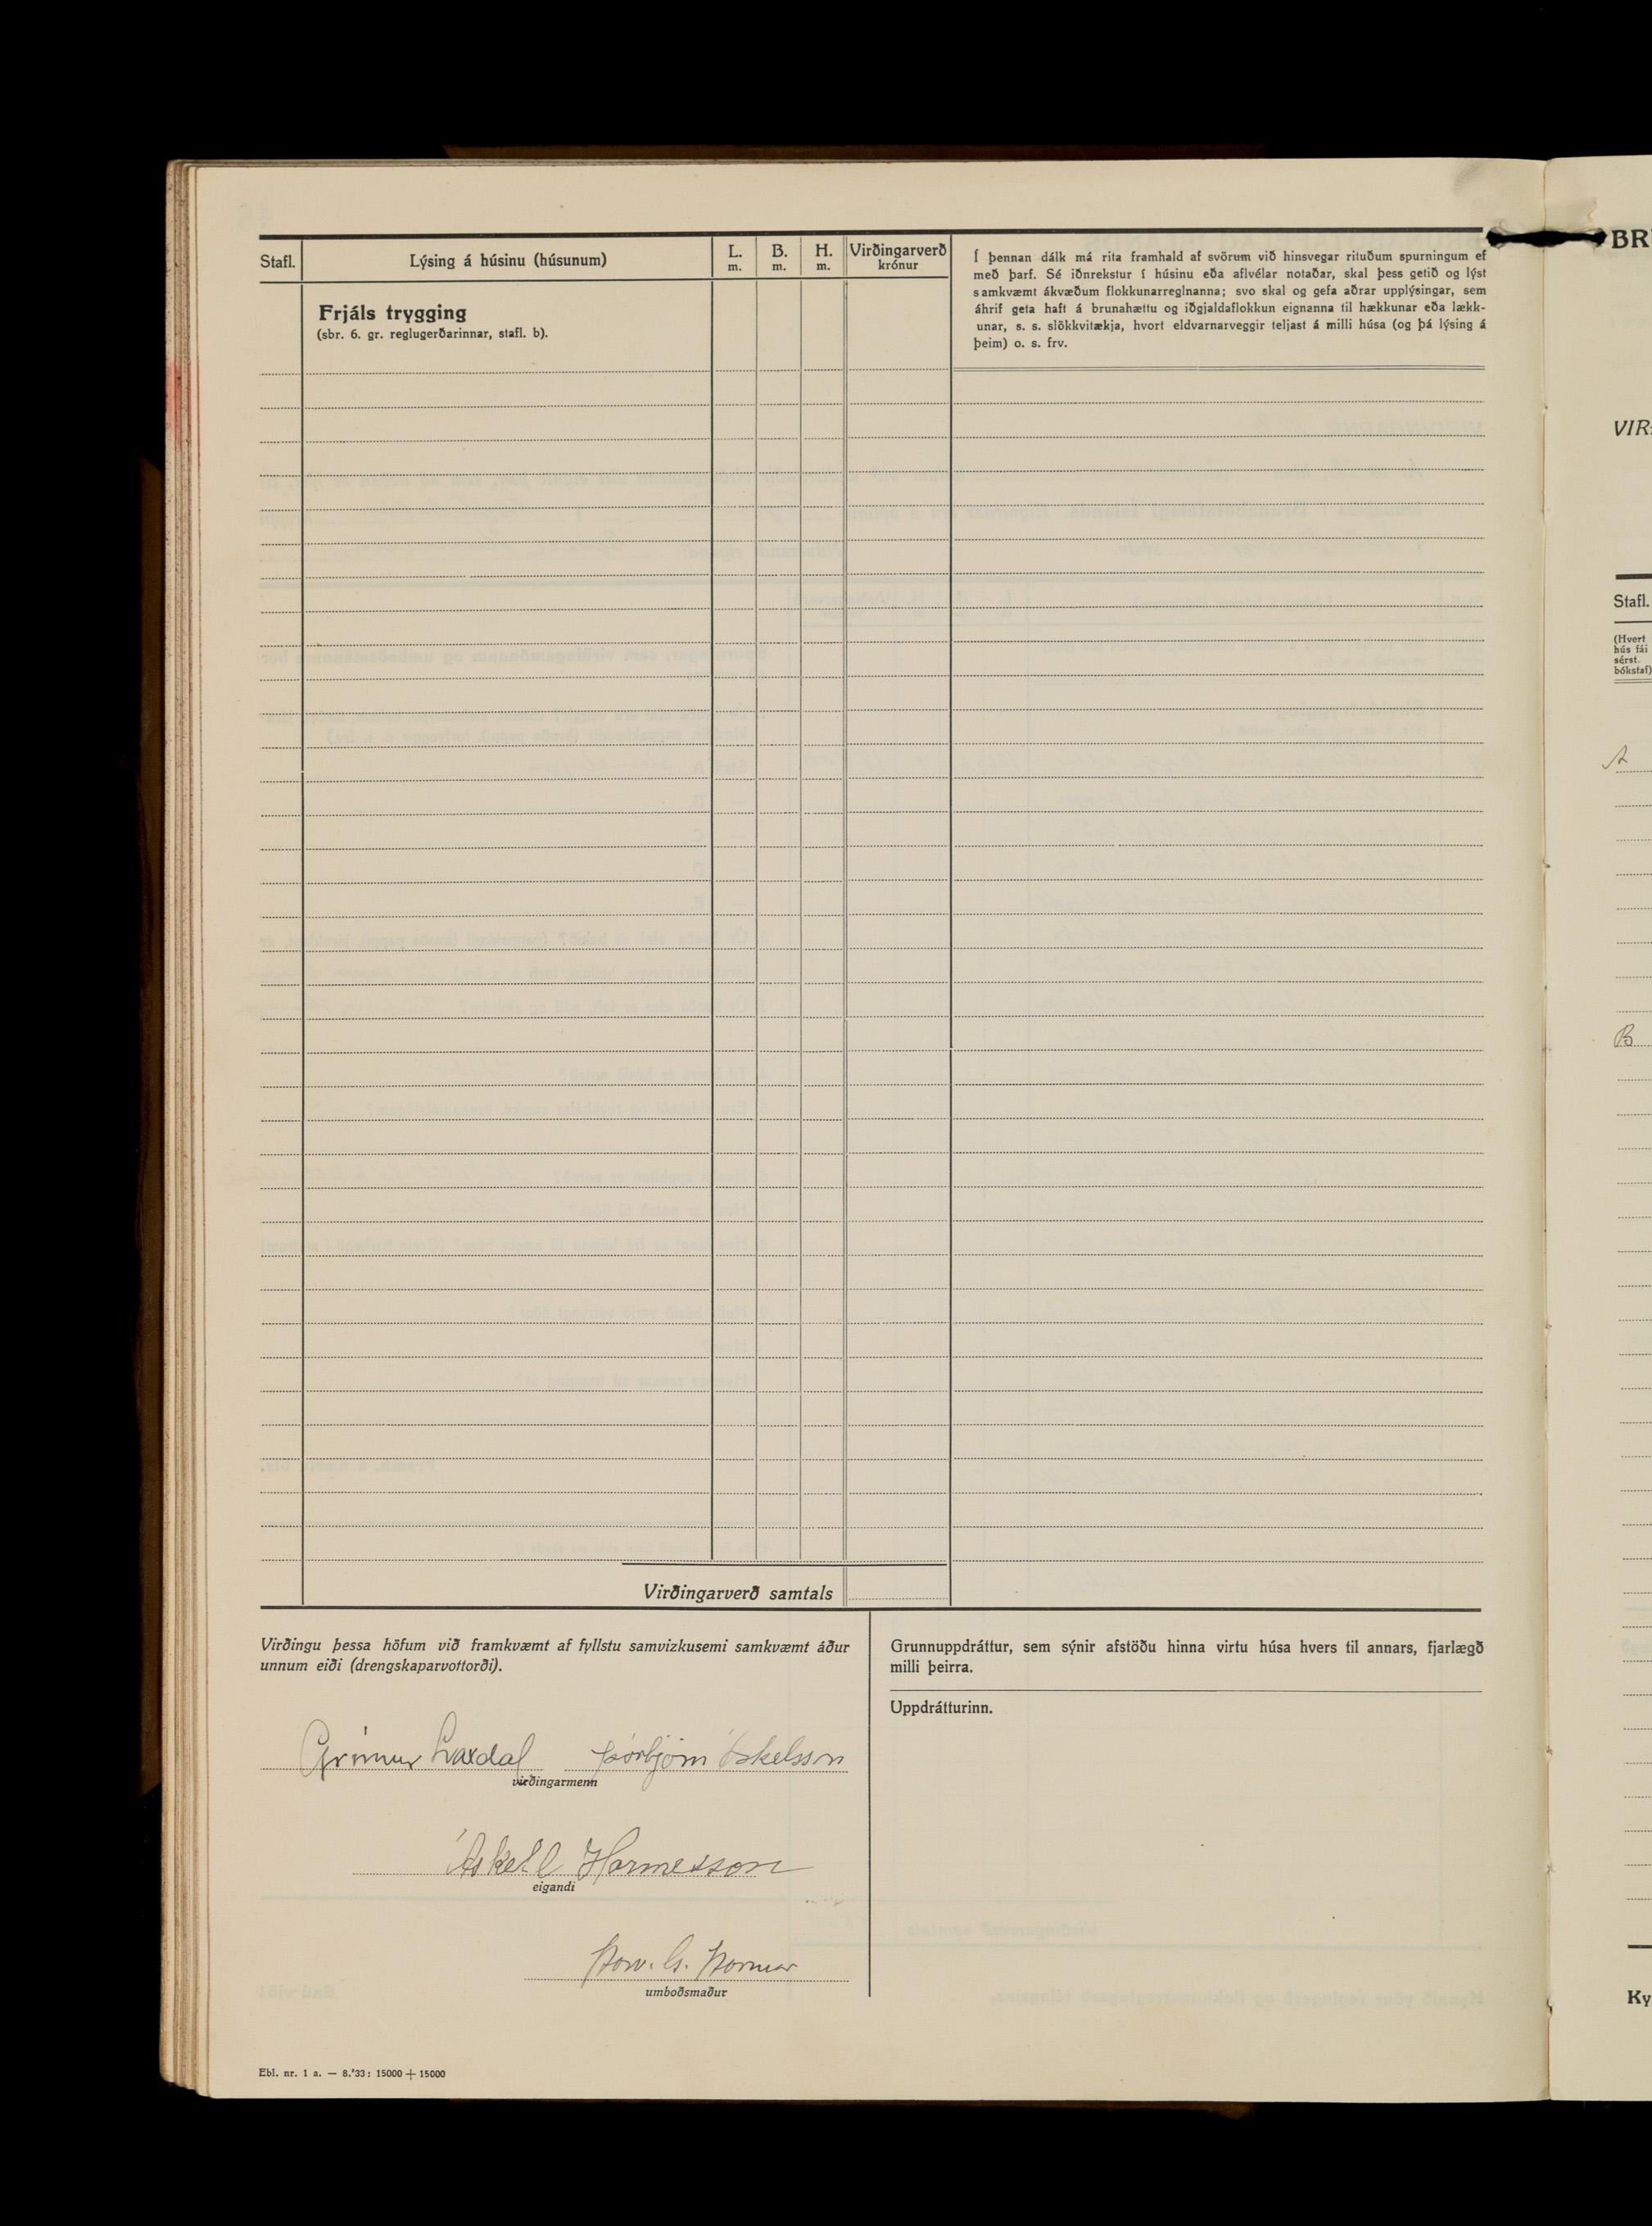 Stafl.
Lýsing á húsinu (húsunum)
L.
m.
B.
m.
H.
m.
Virðingarverð
krónur
Frjáls trygging
(sbr. 6. gr. reglugerðarinnar, stafl. b).
Í þennan dálk má rita framhald af svörum við hinsvegar rituðum spurningum ef
með þarf. Sé iðnrekstur í húsinu eða aflvélar notaðar, skal þess getið og lýst
samkvæmt ákvæðum flokkunarreglnanna; svo skal og gefa aðrar upplýsingar, sem
áhrif geta haft á brunahættu og iðgjaldaflokkun eignanna til hækkunar eða lækk-
unar, s. s. slökkvitækja, hvort eldvarnarveggir teljast á milli húsa (og þá lýsing á
þeim) o. s. frv.
Virðingarverð samtals
Virðingu þessa höfum við framkvæmt af fyllstu samvizkusemi samkvæmt áður
unnum eiði (drengskaparvottorði).
Grímur Laxdal Þórbjörn Áskelsson
virðingarmenn
Áskell Hannesson
eigandi
Þorv. G. Þormar
umboðsmaður
Grunnuppdráttur, sem sýnir afstöðu hinna virtu húsa hvers til annars, fjarlægð
milli þeirra.
Uppdrátturinn.
Ebl. nr. 1 a. — 8.'33: 15000 + 15000
BR
VIR
Stafl.
(Hvert
hús fái
sérst.
bókstaf)
A
B
Ky